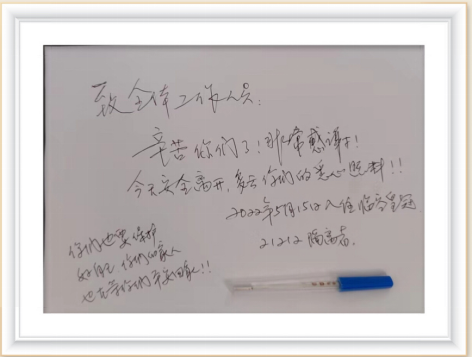 致全体工作人员:
辛苦你们了!非常感谢!
今天安全离开,多亏你们的悉心照料!!
2022年5月15日入住临空皇冠
21212 隔离者.
你们也要保护
好自己 你们的家人
也在等你们平安回家!!